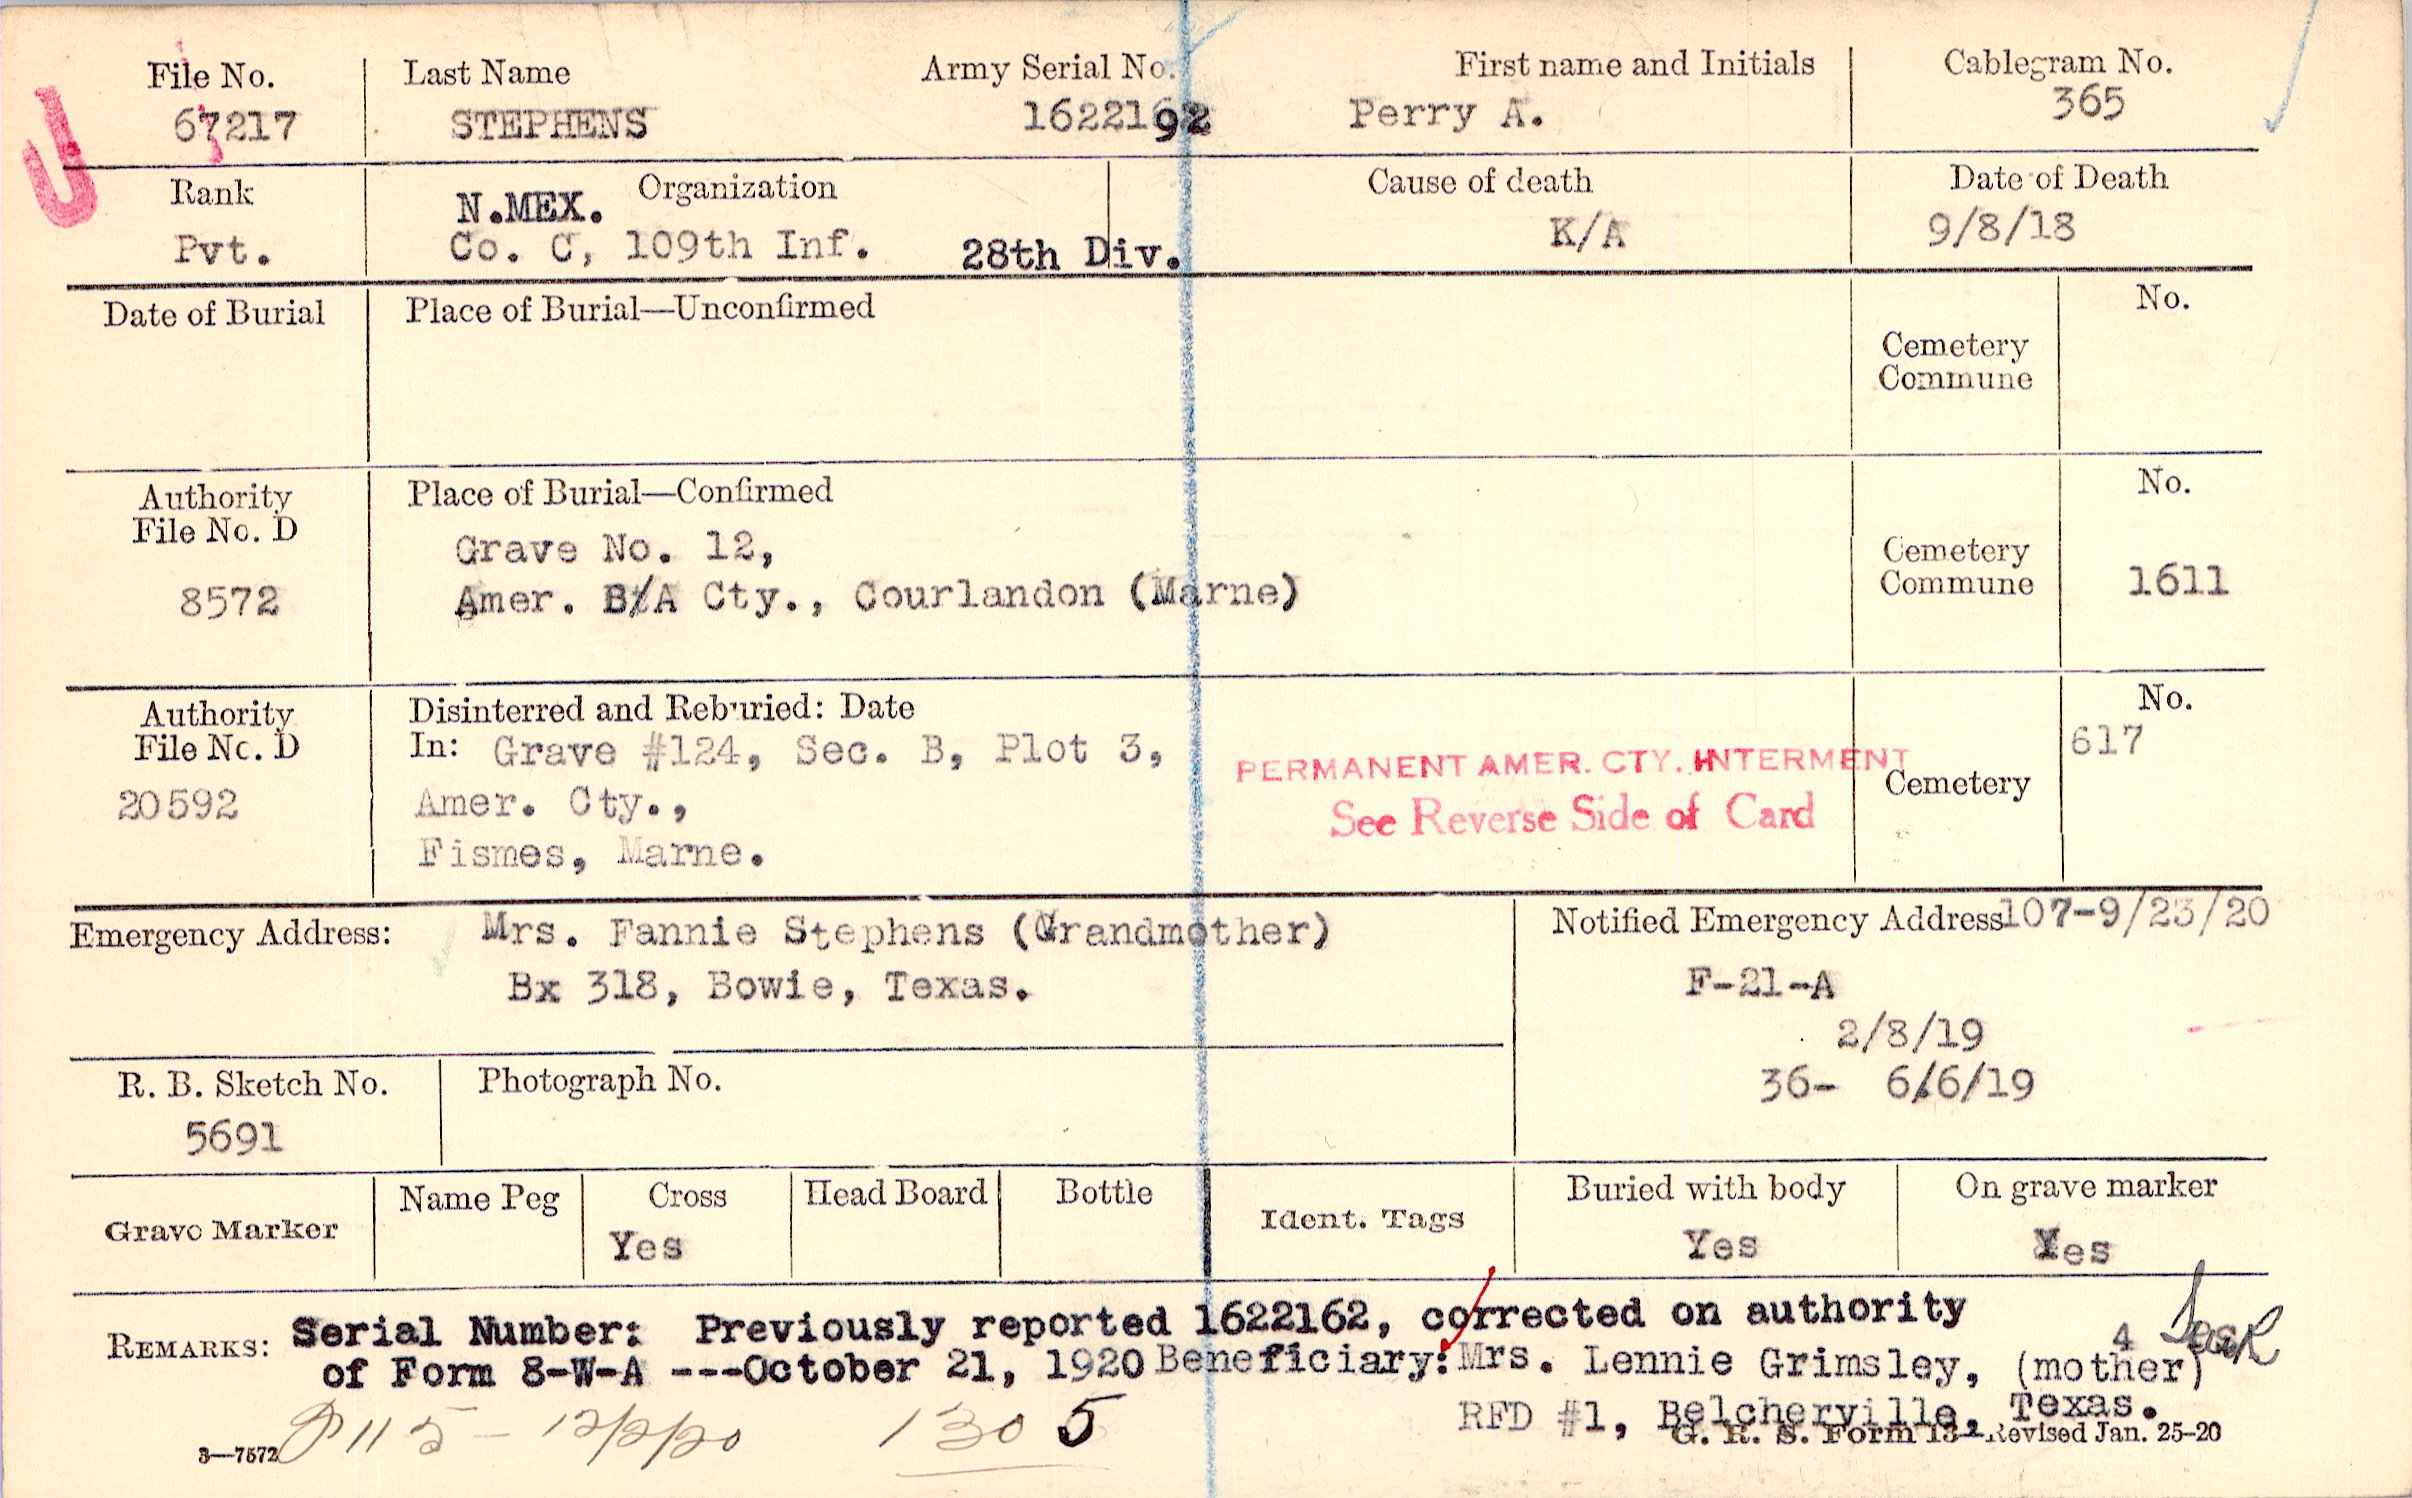 File No.
67217
Last Name
STEPHENS
Army Serial No.
1622192
First name and Initials
Perry A.
Cablegram No.
365
Rank
Pvt.
N.MEX. Organization
Co. C, 109th Inf. 28th Div.
Cause of death
K/A
Date of Death
9/8/18
Date of Burial
Place of Burial—Unconfirmed
Cemetery
Commune
No.
Authority
File No. D
8572
Place of Burial—Confirmed
Grave No. 12,
Amer. B/A Cty., Courlandon (Marne)
Cemetery
Commune
No.
1611
Authority
File No. D
20592
Disinterred and Reburied: Date
In: Grave #124, Sec. B, Plot 3,
Amer. Cty.,
Fismes, Marne.
PERMANENT AMER. CTY. INTERMENT
See Reverse Side of Card
Cemetery
No.
617
Emergency Address: Mrs. Fannie Stephens (Grandmother)
Bx 318, Bowie, Texas.
Notified Emergency Address 107-9/23/20
F-21-A
2/8/19
36- 6/6/19
R. B. Sketch No.
5691
Photograph No.
Grave Marker
Name Peg
Cross
Yes
Head Board
Bottle
Ident. Tags
Buried with body
Yes
On grave marker
Yes
REMARKS: Serial Number: Previously reported 1622162, corrected on authority
of Form 8-W-A ---October 21, 1920 Beneficiary: Mrs. Lennie Grimsley, (mother)
4
RFD #1, Belcherville, Texas.
115 - 12/2/20 1305
3—7572
G. R. S. Form 13-Revised Jan. 25-20